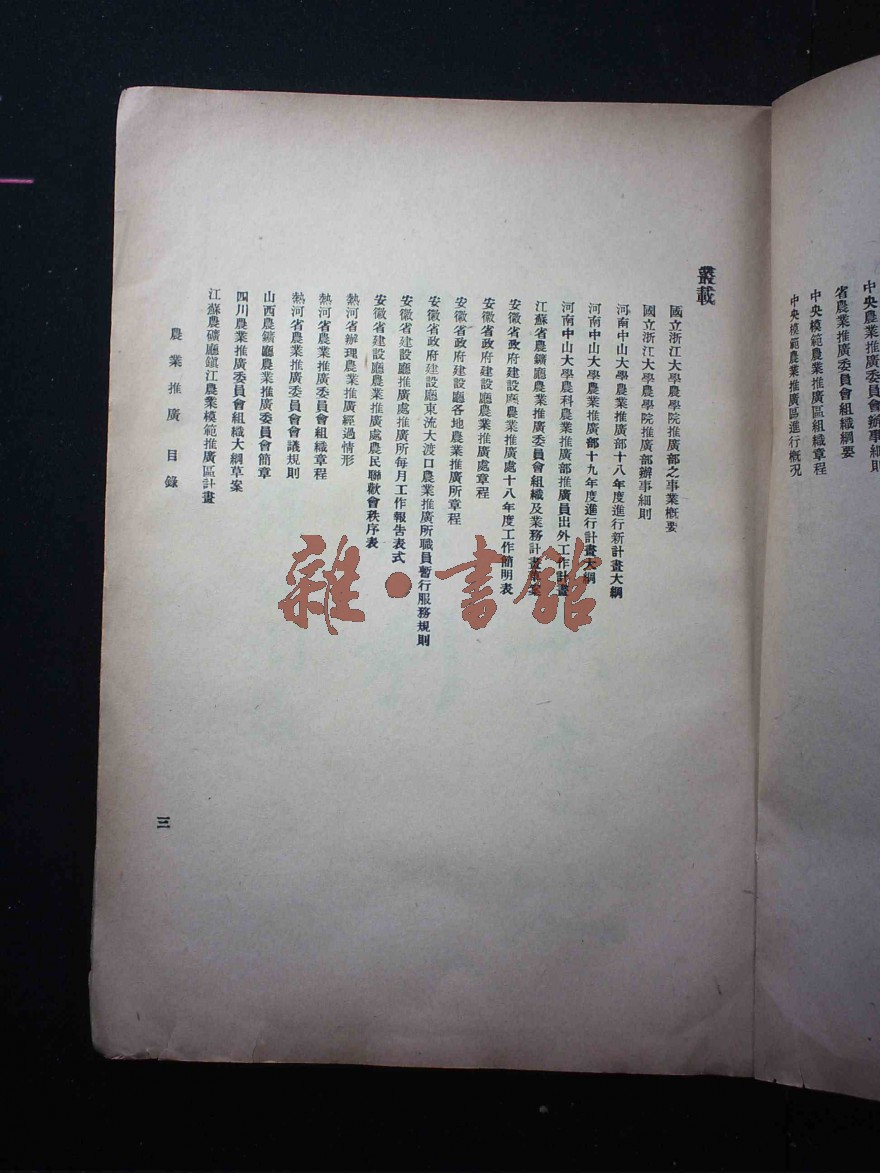 中央農業推廣委員會辦事細則
省農業推廣委員會組織綱要
中央模範農業推廣區組織章程
中央模範農業推廣區進行概況
叢載
國立浙江大學農學院推廣部之事業概要
國立浙江大學農學院推廣部辦事細則
河南中山大學農業推廣部十八年度進行新計畫大綱
河南中山大學農業推廣部十九年度進行計畫大綱
河南中山大學農科農業推廣部推廣員出外工作計畫
江蘇省農鑛廳農業推廣委員會組織及業務計畫草案
安徽省政府建設廳農業推廣處十八年度工作簡明表
安徽省政府建設廳農業推廣處章程
安徽省政府建設廳各地農業推廣所章程
安徽省政府建設廳東流大渡口農業推廣所職員暫行服務規則
安徽省建設廳推廣處推廣所每月工作報告表式
安徽省建設廳農業推廣處農民聯歡會秩序表
熱河省辦理農業推廣經過情形
熱河省農業推廣委員會組織章程
熱河省農業推廣委員會會議規則
山西農鑛廳農業推廣委員會簡章
四川農業推廣委員會組織大綱草案
江蘇農礦廳鎮江農業模範推廣區計畫
農業推廣目錄
三
雜·書館